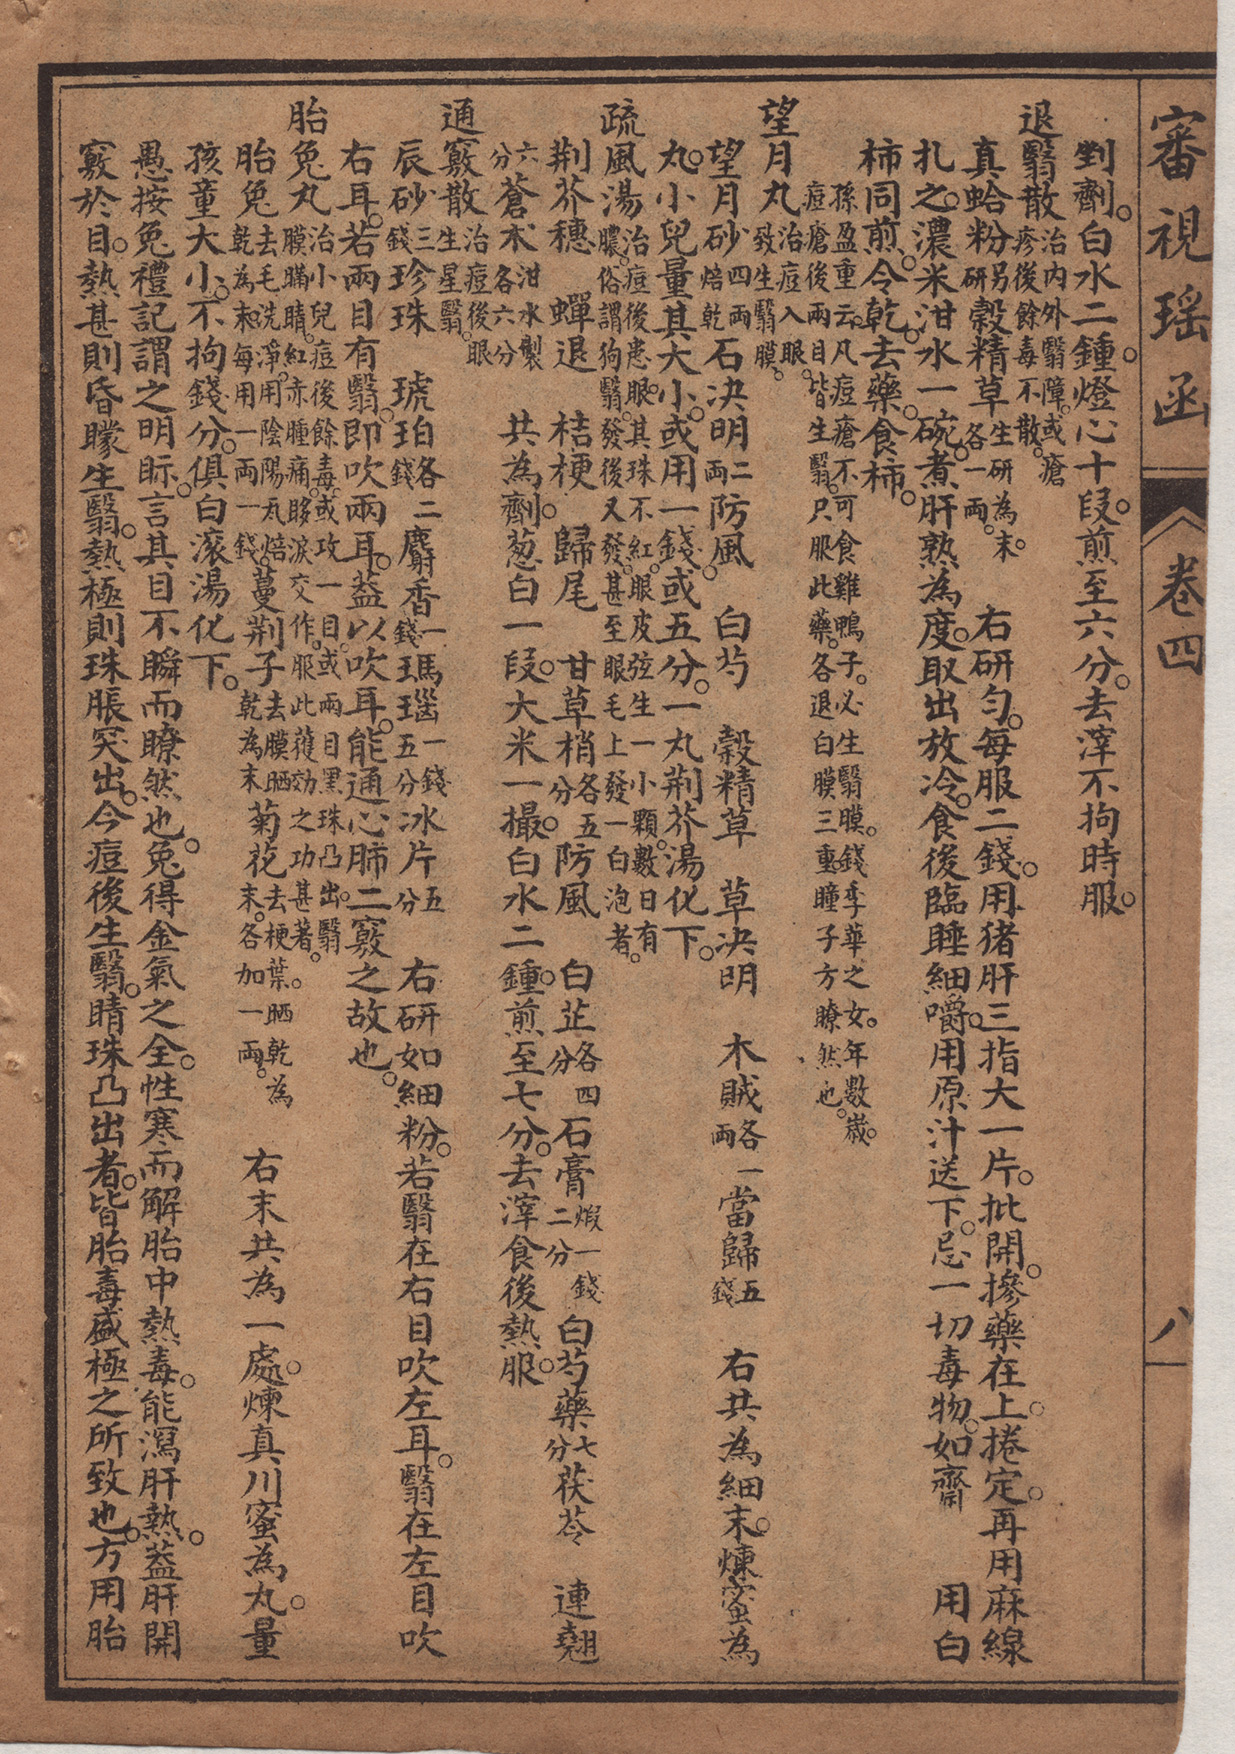 審視瑶函
卷四
八
剉劑。白水二鍾。燈心十段。煎至六分。去滓不拘時服。
退翳散治内外翳障。或瘡疹後餘毒不散。
真蛤粉另研穀精草生研為末。各一兩。右研勻。每服二錢。用猪肝三指大一片。批開。摻藥在上。捲定。再用麻線
扎之。濃米泔水一碗。煮肝熟為度。取出放冷。食後臨睡細嚼。用原汁送下。忌一切毒物。如齋用白
柿同煎。令乾。去藥。食柿。
孫盈重云。凡痘瘡不可食雞鴨子。必生翳膜。錢季華之女。年數歲。
痘瘡後兩目皆生翳。只服此藥。各退白膜三重。瞳子方瞭然也。
望月丸治痘入眼。致生翳膜。
望月砂四兩焙乾石决明二兩防風。白芍穀精草草决明木賊各一兩當歸五錢右共為細末。煉蜜為
丸。小兒量其大小。或用一錢或五分。一丸荆芥湯化下。
疏風湯治痘後患眼。其珠不紅。眼皮弦生一小顆。數日有膿。俗謂狗翳。發後又發。甚至眼毛上發一白泡者。
荆芥穗蟬退桔梗歸尾甘草梢各五分防風白芷各四分石膏煅一錢二分白芍藥七分茯苓連翹
六分蒼朮泔水製各六分共為劑。葱白一段。大米一撮。白水二鍾。煎至七分。去滓食後熱服。
通竅散治痘後眼生星翳。
辰砂三錢珍珠琥珀各二錢麝香一錢瑪瑙一錢五分冰片五分右研如細粉。若翳在右目吹左耳。翳在左目吹
右耳。若兩目有翳。即吹兩耳。蓋以吹耳。能通心肺二竅之故也。
胎兔丸治小兒痘後餘毒。或攻一目。或兩目黑珠凸出。翳膜瞞睛。紅赤腫痛。眵淚交作。服此獲効之功甚著。
胎兔去毛洗淨。用陰陽丸焙乾為末。每用一兩一錢。蔓荆子去膜晒乾為末菊花去梗葉。晒乾為末。各加一兩。右末共為一處。煉真川蜜為丸。量
孩童大小。不拘錢分。俱白滚湯化下。
愚按兔禮記謂之明眎。言其目不瞬而瞭然也。兔得金氣之全。性寒而解胎中熱毒。能瀉肝熱。蓋肝開
竅於目。熱甚則昏矇生翳。熱極則珠脹突出。今痘後生翳。睛珠凸出者。皆胎毒盛極之所致也。方用胎